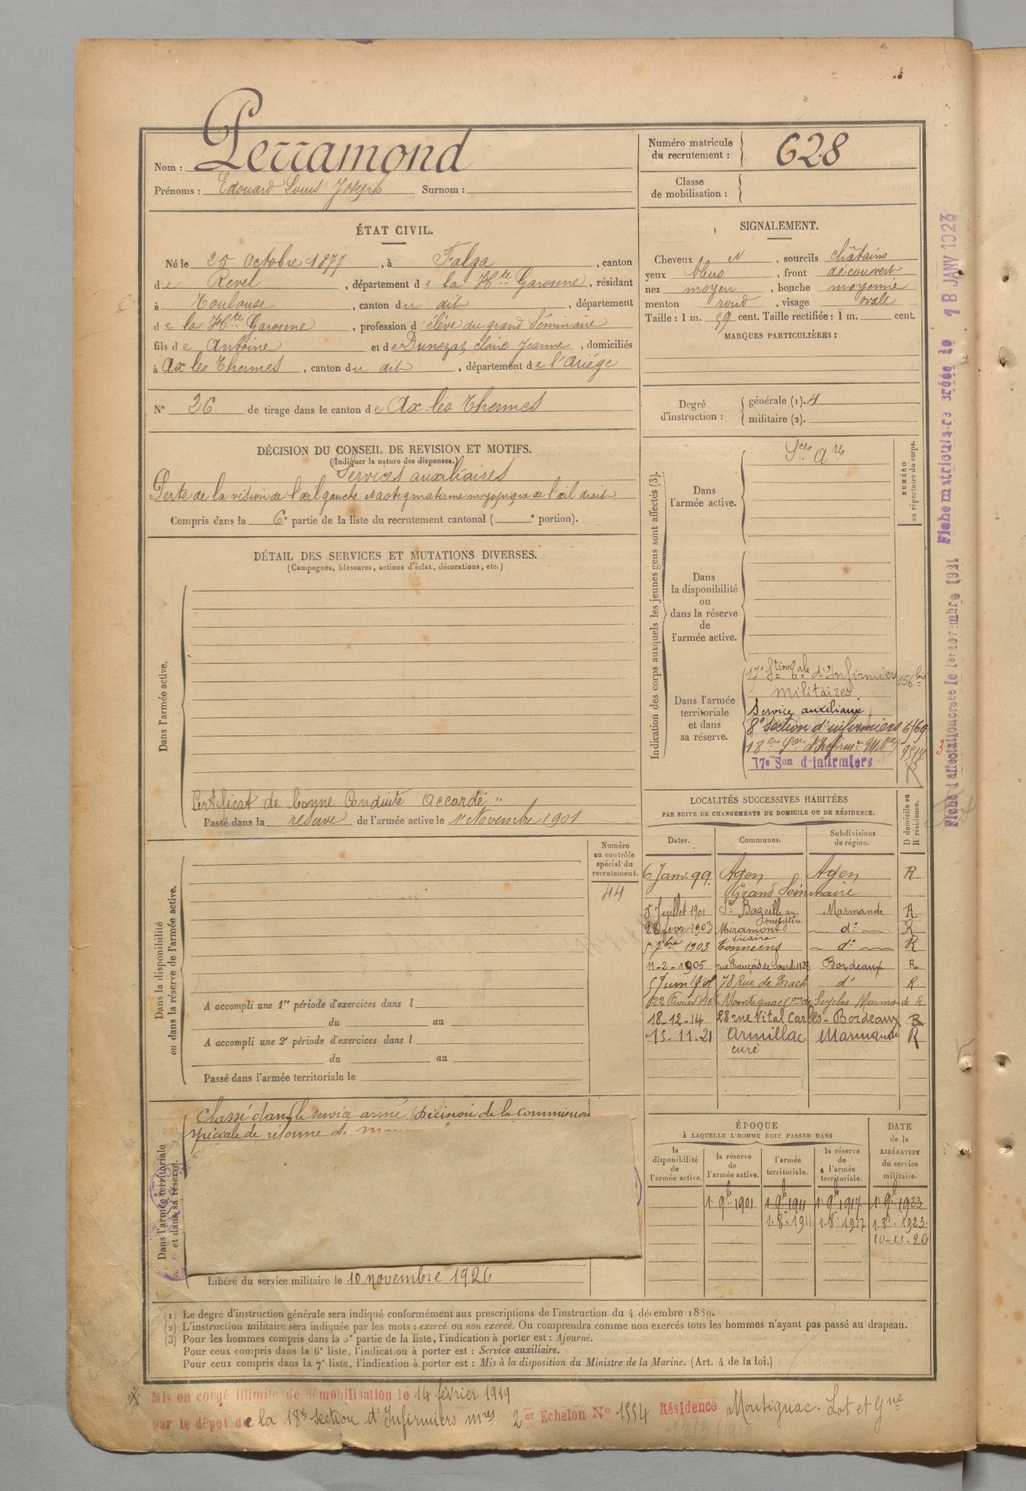 Nom : Perramond
Prénoms : Edouard Louis Joseph Surnom :
Numéro matricule du recrutement : 628
Classe de mobilisation :
ÉTAT CIVIL.
Né le 25 Octobre 1877, à Falga, canton
de Revel, département de la Hte Garonne, résidant
à Toulouse, canton du dit, département
de la Hte Garonne, profession d'élève du grand Séminaire
fils de Antoine et de Claire Jeanne, domiciliés
à Ax les Thermes, canton du dit, département de l'Ariége
N° 26 de tirage dans le canton de Ax-les-Thermes
SIGNALEMENT.
Cheveux N, sourcils châtains
yeux bleus, front découvert
nez moyen, bouche moyenne
menton rond, visage ovale
Taille : 1 m. 59 cent. Taille rectifiée : 1 m. cent.
MARQUES PARTICULIÈRES :
Degré d'instruction : générale (1). 4
militaire (2).
DÉCISION DU CONSEIL DE REVISION ET MOTIFS.
(Indiquer la nature des dispenses.)
Services auxiliaires
Perte de la vision de l'œil gauche de l'œil droit
Compris dans la 6e partie de la liste du recrutement cantonal (e portion).
DÉTAIL DES SERVICES ET MUTATIONS DIVERSES.
(Campagnes, blessures, actions d'éclat, décorations, etc.)
Dans l'armée active.
Certificat de bonne Conduite Accordé
Passé dans la réserve de l'armée active le 1er Novembre 1901
Indication des corps auxquels les jeunes gens sont affectés (3).
NUMÉRO au répertoire du corps.
Dans l'armée active.
Sces Aux
Dans la disponibilité ou dans la réserve de l'armée active.
Dans l'armée territoriale et dans sa réserve.
17e Stion tale d'Infirmiers 156
militaires
Service auxiliaire
8e Section d'infirmiers
18e Son d'Infirm. Milres
17e Son d'infirmiers
R
LOCALITÉS SUCCESSIVES HABITÉES
PAR SUITE DE CHANGEMENTS DE DOMICILE OU DE RÉSIDENCE.
Dates. Communes. Subdivisions de région. D domicile ou R résidence.
6 Janv. 99 Agen Agen R
Grand Séminaire
5 Juillet 1901 Ste Bazeille au presbytère Marmande R
26 févr 1903 Miramont vicaire d° R
5 7bre 1903 Tonneins d° R
11-2-1905 rue François de Bordeaux R
5 Juin 78 Rue de d° R
22 Février Montignac R
18-12-14 28 rue Vital Carles - Bordeaux R
15-11-21 Armillac Marmande R
curé
Numéro au contrôle spécial du recrutement.
44
Dans la disponibilité ou dans la réserve de l'armée active.
A accompli une 1re période d'exercices dans l
du au
A accompli une 2e période d'exercices dans l
du au
Passé dans l'armée territoriale le
Dans l'armée territoriale et dans sa réserve.
Classé dans le service armé (Décision de la Commission
spéciale de réforme de
Libéré du service militaire le 10 novembre 1926
ÉPOQUE
À LAQUELLE L'HOMME DOIT PASSER DANS
DATE de la LIBÉRATION du service militaire.
la disponibilité de l'armée active. la réserve de l'armée active. l'armée territoriale. la réserve de l'armée territoriale.
1 9b 1901 1 9b 1911 1 9b 1917 1 9b 1923
1-8-1911 1-8-1917 1-8-1923
10-11-26
(1) Le degré d'instruction générale sera indiqué conformément aux prescriptions de l'instruction du 4 décembre 1889.
(2) L'instruction militaire sera indiquée par les mots : exercé ou non exercé. On comprendra comme non exercés tous les hommes n'ayant pas passé au drapeau.
(3) Pour les hommes compris dans la 5e partie de la liste, l'indication à porter est : Ajourné.
Pour ceux compris dans la 6e liste, l'indication à porter est : Service auxiliaire.
Pour ceux compris dans la 7e liste, l'indication à porter est : Mis à la disposition du Ministre de la Marine. (Art. 4 de la loi.)
Mis en congé illimité de démobilisation le 14 février 1919
par le dépôt de la 18e section d'Infirmiers mres 2e Echelon N° 1554 Résidence Montignac - Lot et Gne
Fiche d'affectation créée le 1er novembre 1921
Fiche matriculaire créée le 18 JANV 1923